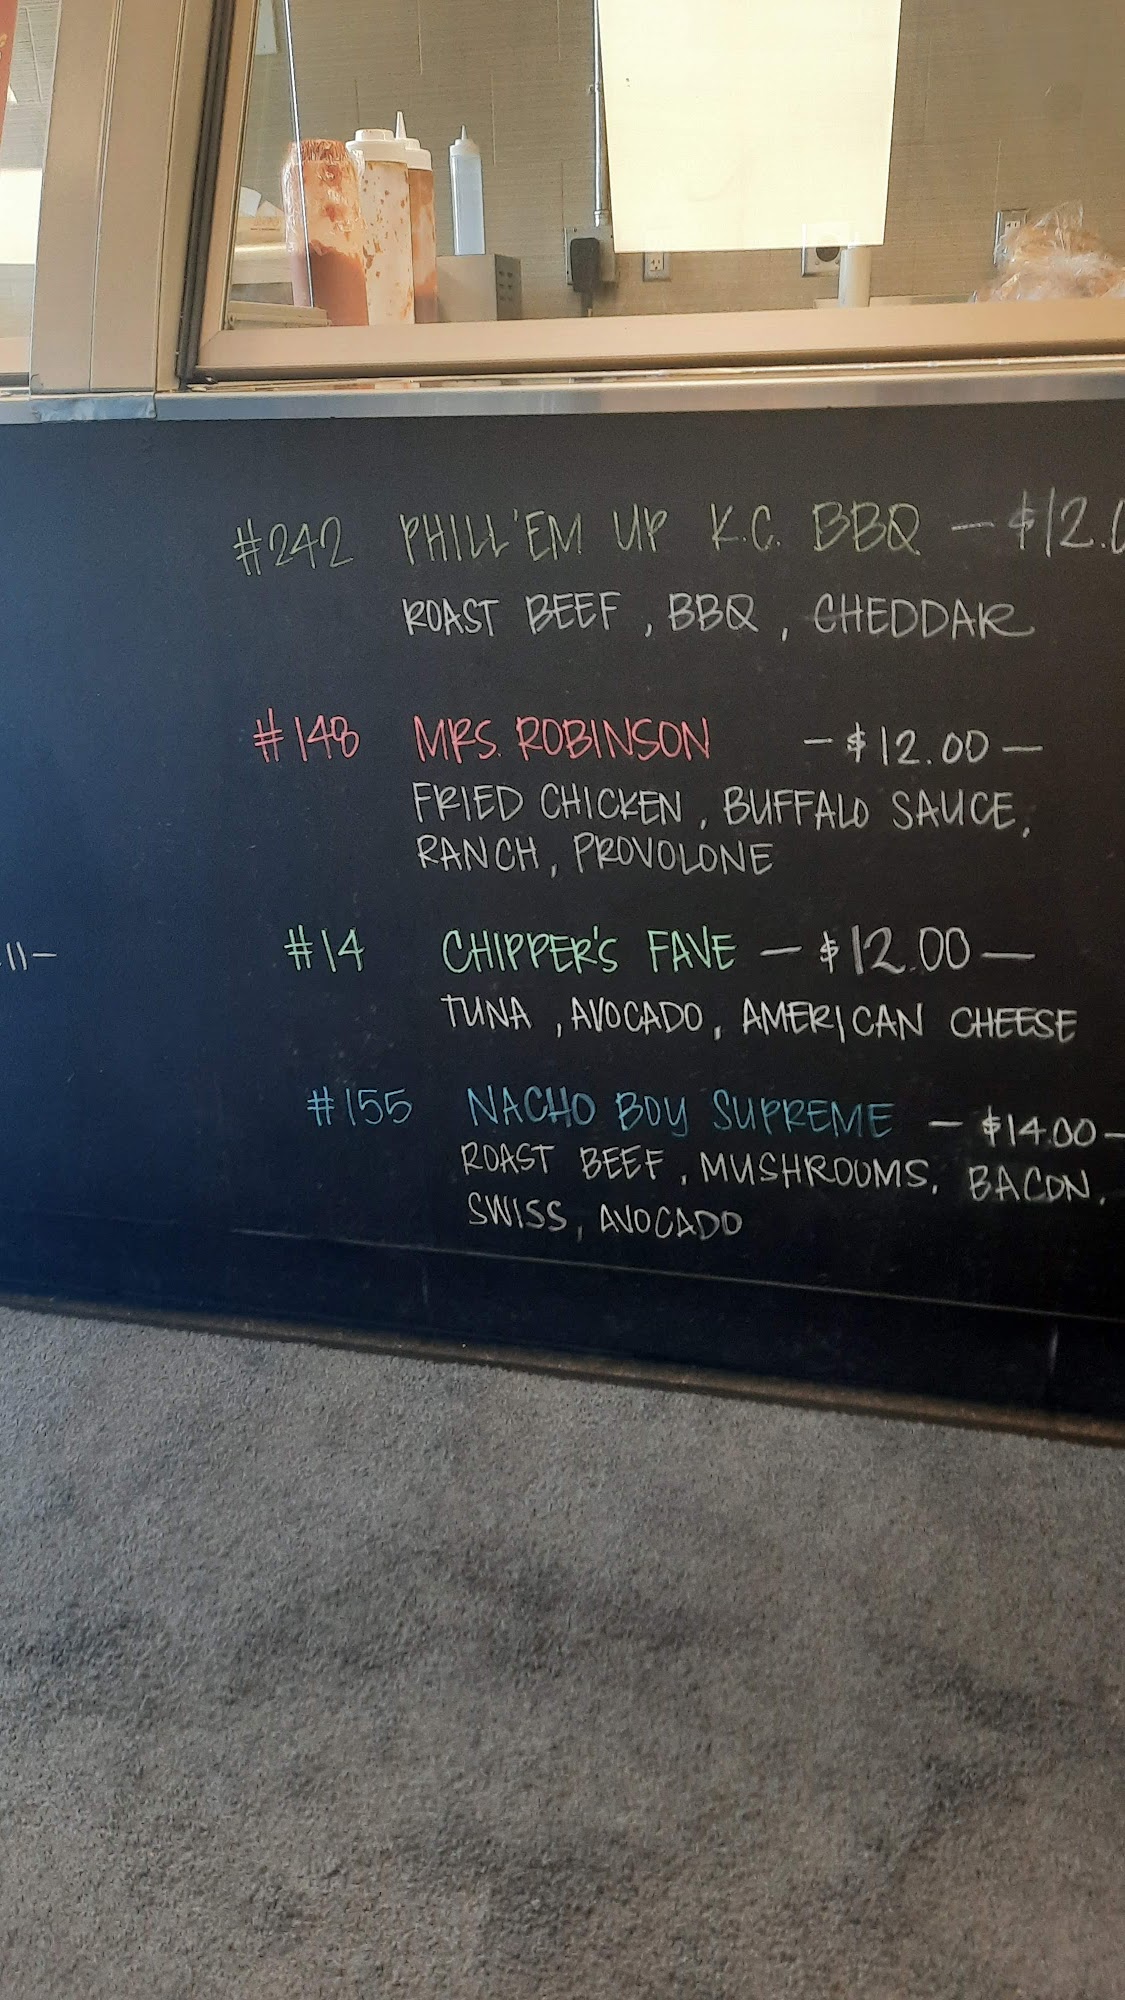 #242 PHILL'EM UP K.C. BBQ — $12.0
ROAST BEEF, BBQ, CHEDDAR
#148 MRS. ROBINSON — $12.00 —
FRIED CHICKEN, BUFFALO SAUCE,
RANCH, PROVOLONE
11—
#14 CHIPPER'S FAVE — $12.00 —
TUNA, AVOCADO, AMERICAN CHEESE
#155 NACHO BOY SUPREME — $14.00 —
ROAST BEEF, MUSHROOMS, BACON,
SWISS, AVOCADO